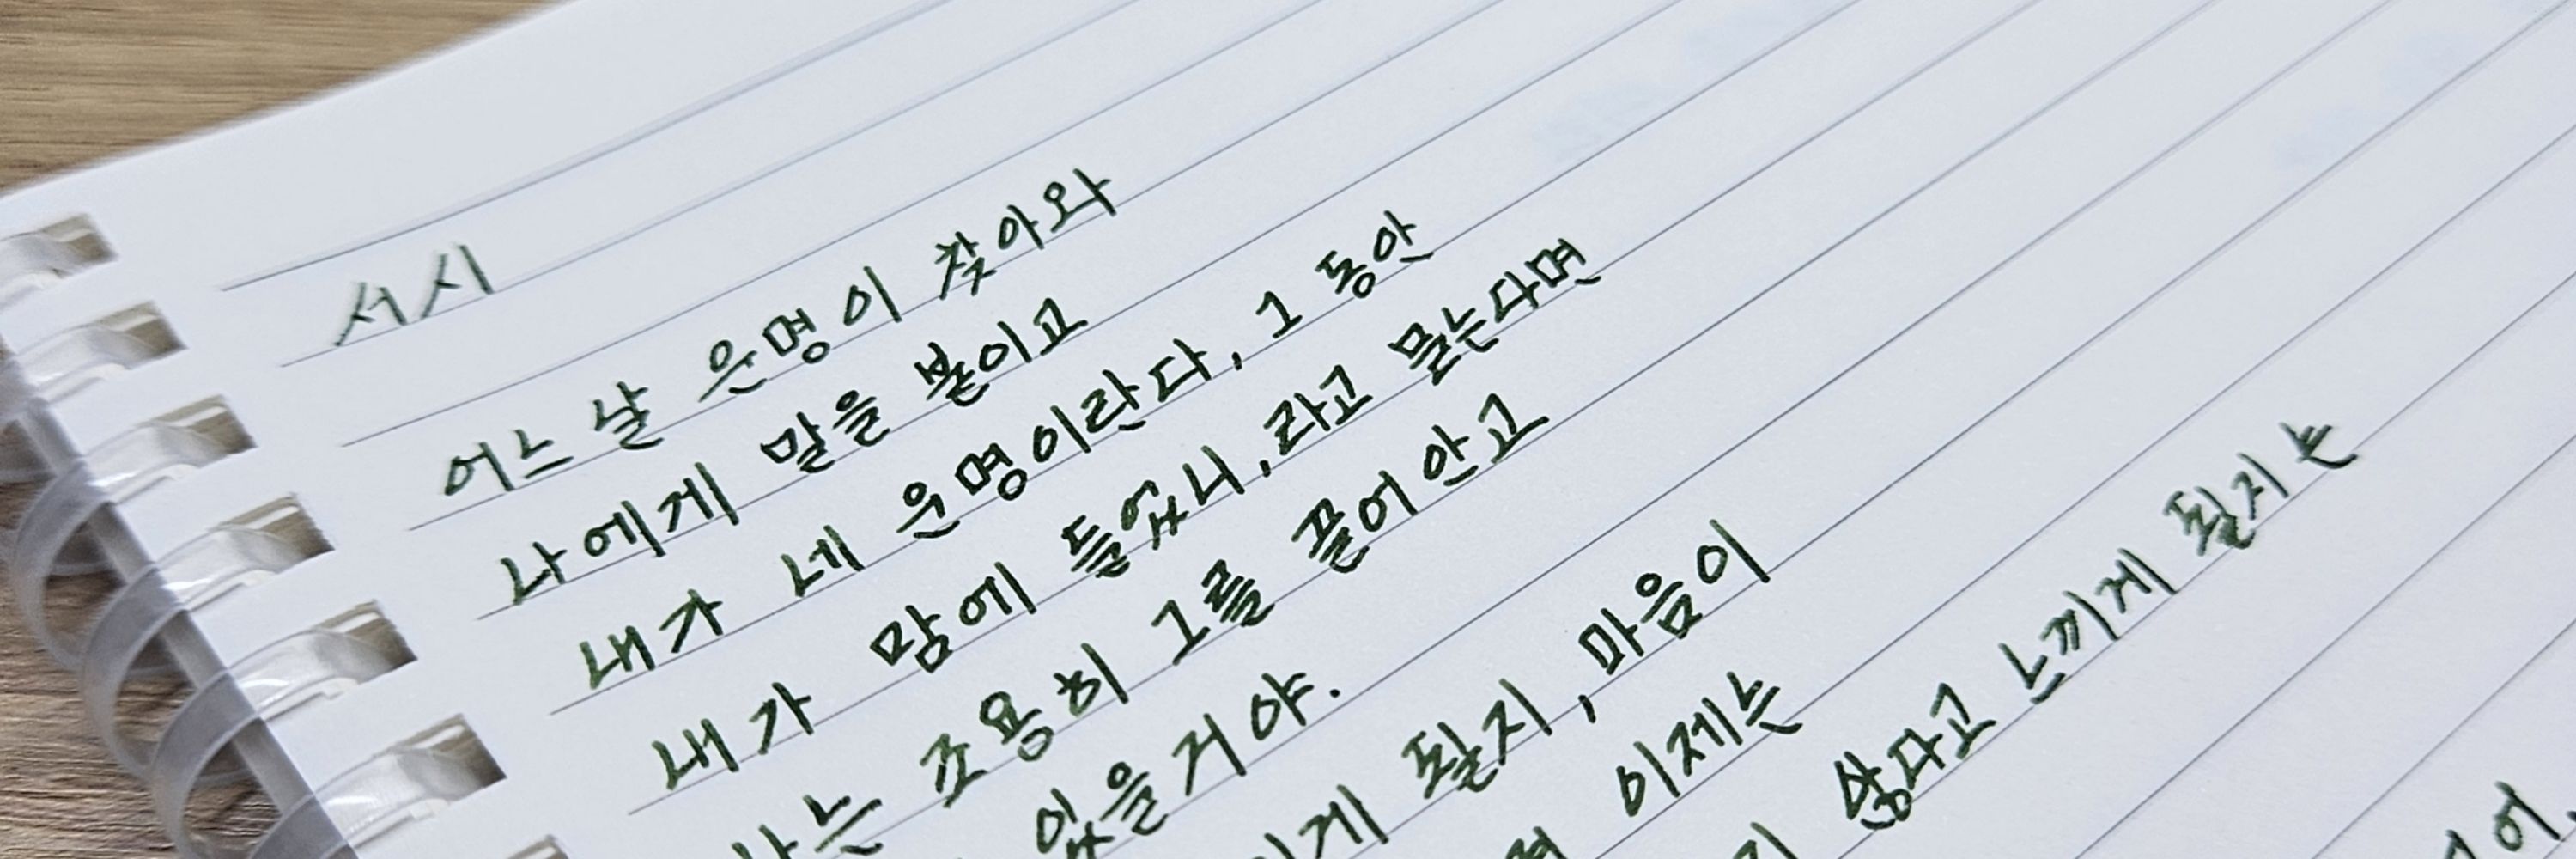 서시
어느 날 운명이 찾아와
나에게 말을 붙이고
내가 네 운명이란다, 그 동안
내가 맘에 들었니, 라고 묻는다면
나는 조용히 그를 끌어안고
있을거야.
될지, 마음이
이제는
않다고 느끼게 될지는